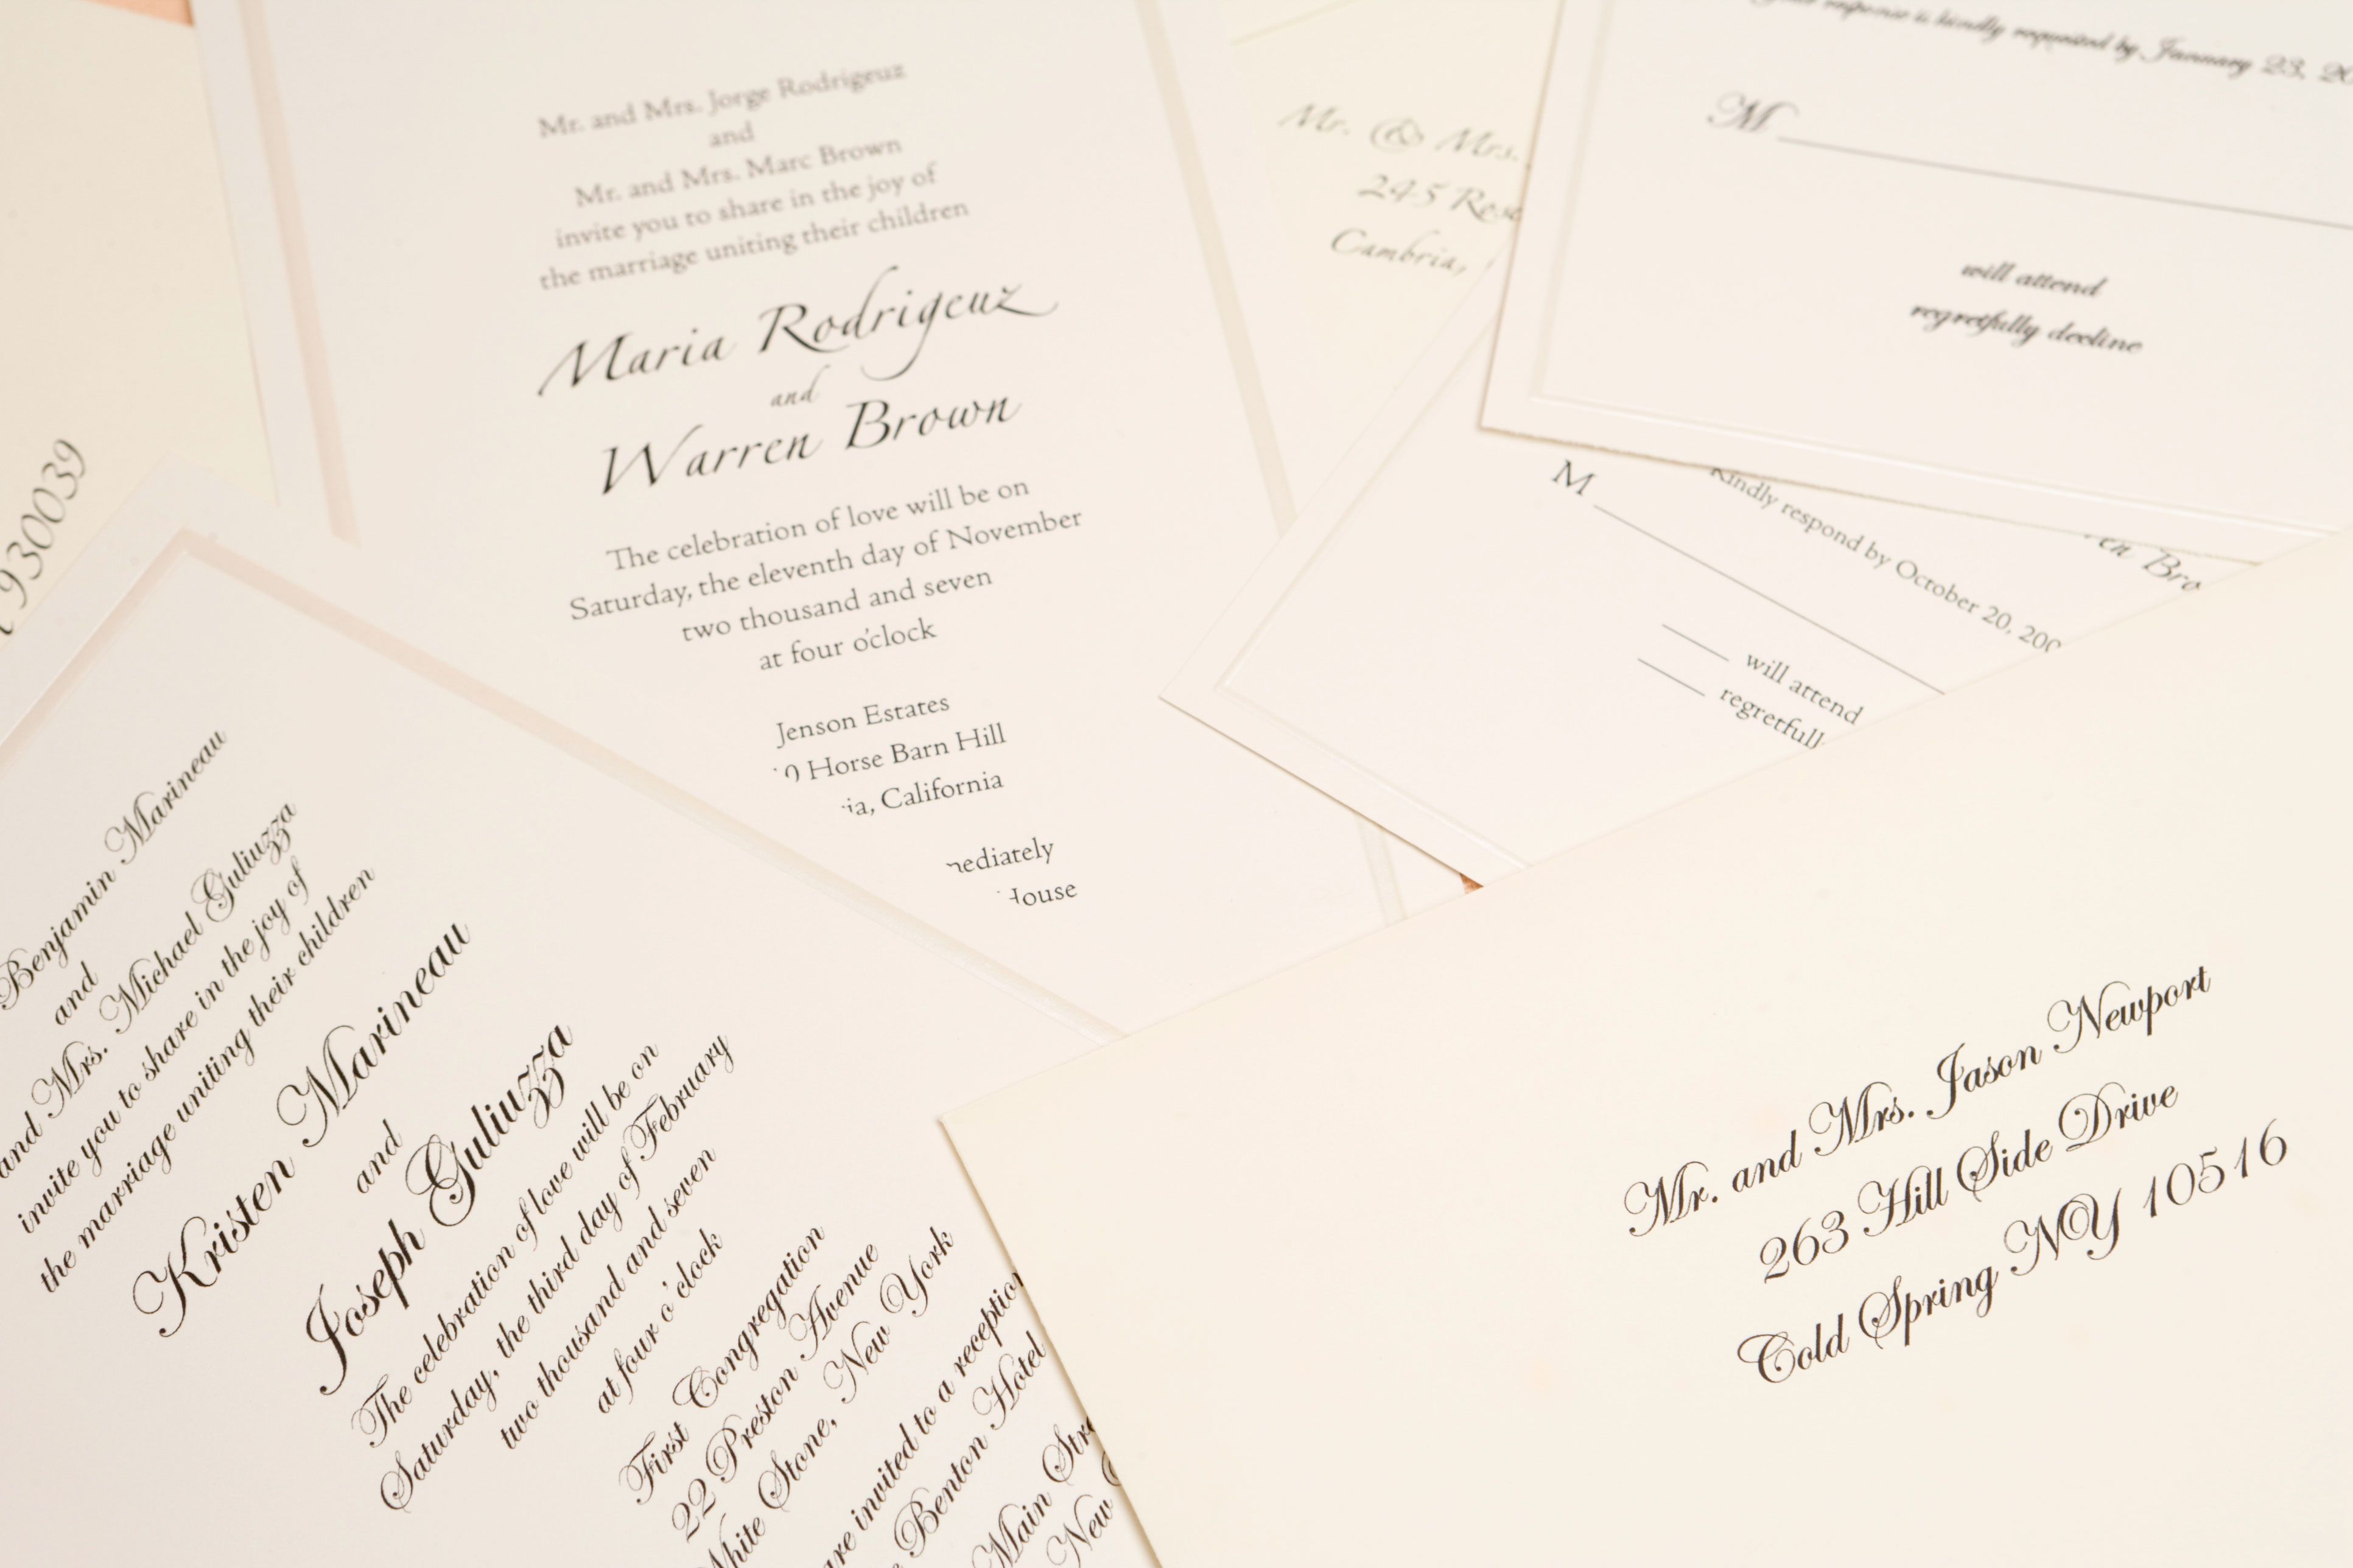 Mr. and Mrs. Jorge Rodrigeuz
and
Mr. and Mrs. Marc Brown
invite you to share in the joy of
the marriage uniting their children
Maria Rodrigeuz
and
Warren Brown
The celebration of love will be on
Saturday, the eleventh day of November
two thousand and seven
at four o'clock
Jenson Estates
0 Horse Barn Hill
ia, California
mediately
House
Mr. & Mrs.
245 Rose
Cambria,
response is kindly requested by January 23, 20
M
will attend
regretfully decline
Kindly respond by October 20, 200
M
will attend
regretfull
en Bro
930039
Benjamin Marineau
and
and Mrs. Michael Guliuzza
invite you to share in the joy of
the marriage uniting their children
Kristen Marineau
and
Joseph Guliuzza
The celebration of love will be on
Saturday, the third day of February
two thousand and seven
at four o'clock
First Congregation
22 Preston Avenue
White Stone, New York
are invited to a reception
Benton Hotel
Main Stre
New
Mr. and Mrs. Jason Newport
263 Hill Side Drive
Cold Spring NY 10516